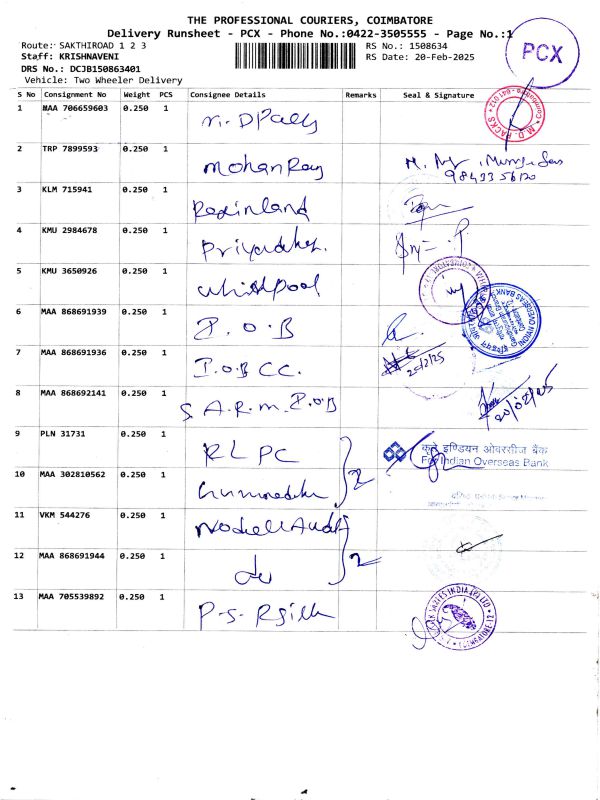 THE PROFESSIONAL COURIERS, COIMBATORE
Delivery Runsheet - PCX - Phone No.:0422-3505555 - Page No.:1
Route: SAKTHIROAD 1 2 3 RS No.: 1508634
Staff: KRISHNAVENI RS Date: 20-Feb-2025
PCX
DRS No.: DCJB150863401
Vehicle: Two Wheeler Delivery
S No Consignment No Weight PCS Consignee Details Remarks Seal & Signature
1 MAA 706659603 0.250 1
M.D. PACKS
2 TRP 7899593 0.250 1 Mohan Raj
3 KLM 715941 0.250 1
4 KMU 2984678 0.250 1
5 KMU 3650926 0.250 1 Whirlpool
6 MAA 868691939 0.250 1 I.O.B
INDIAN OVERSEAS BANK
7 MAA 868691936 0.250 1 I.O.B C.C.
20/2/25
8 MAA 868692141 0.250 1 S.A.R.M. I.O.B
20/02/25
9 PLN 31731 0.250 1 RLPC
इण्डियन ओवरसीज बैंक
For Indian Overseas Bank
10 MAA 302810562 0.250 1
2
11 VKM 544276 0.250 1
12 MAA 868691944 0.250 1 do
2
13 MAA 705539892 0.250 1